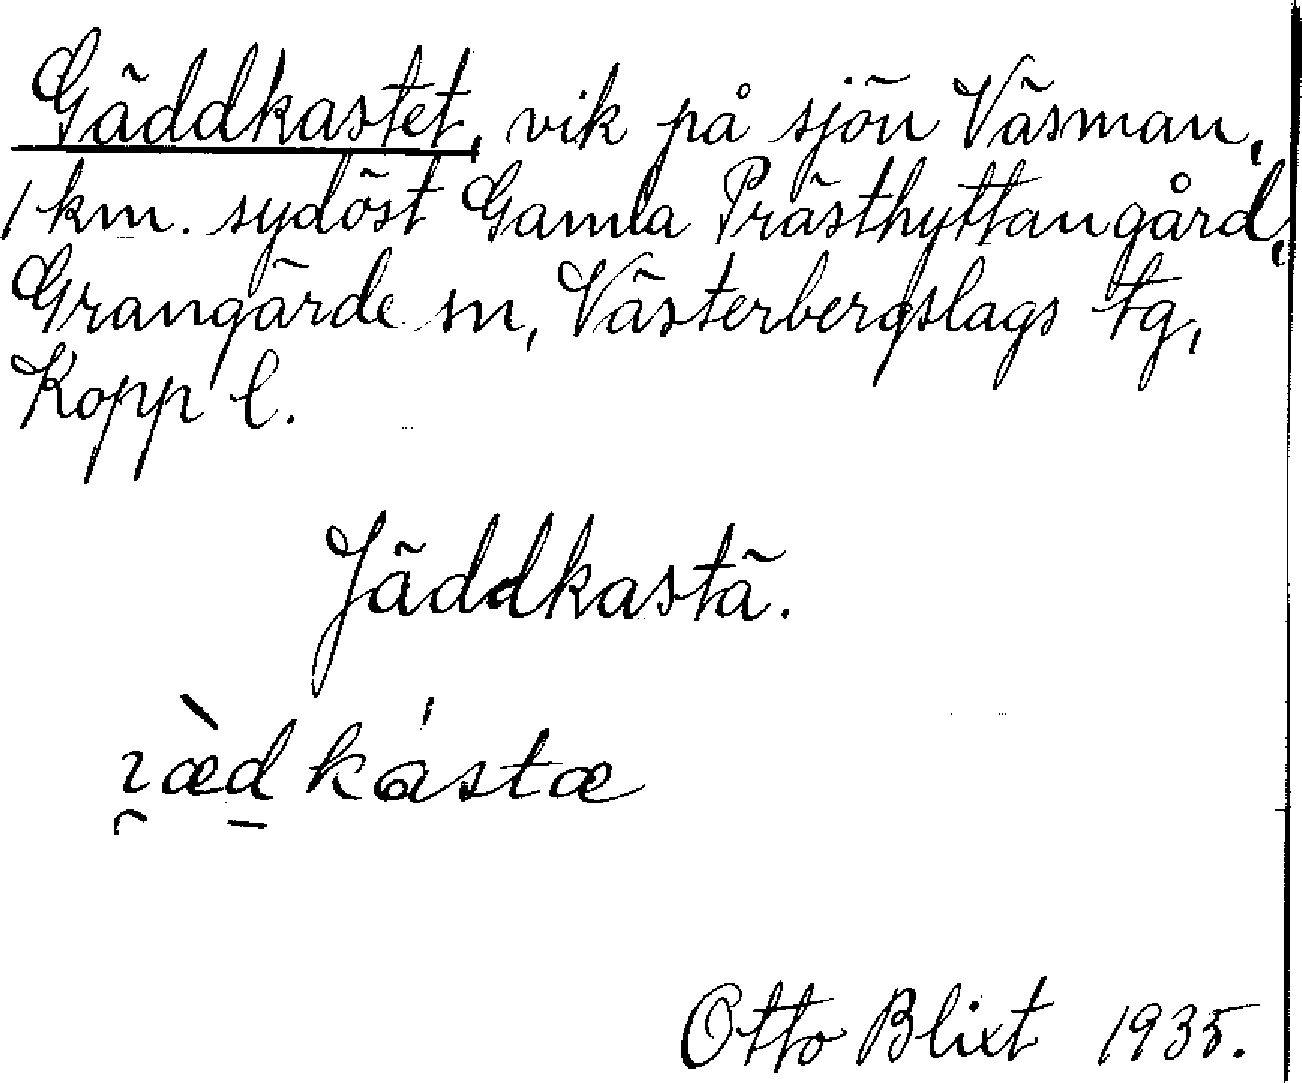 Gäddkastet, vik på sjön Väsman,
1 km. sydöst Gamla Prästhyttangård,
Grangärde sn, Västerbergslags tg,
Kopp l.
Jäddkastä.
ɿæ̀d kástæ
Otto Blixt 1935.